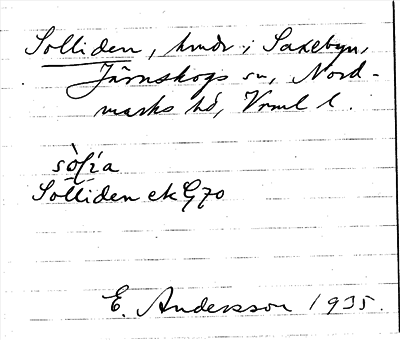 Solliden, hmdr i Saxebyn,
Järnskogs sn, Nord-
marks hd, Vrml l.
sòlía
Solliden ek G70
E. Andersson 1935.